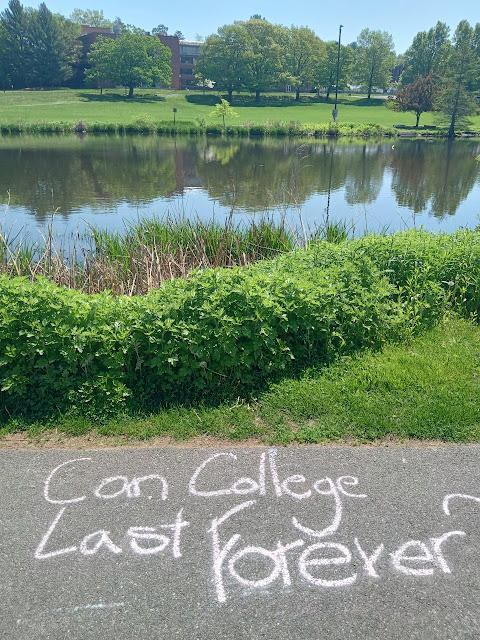 Can College
Last Forever